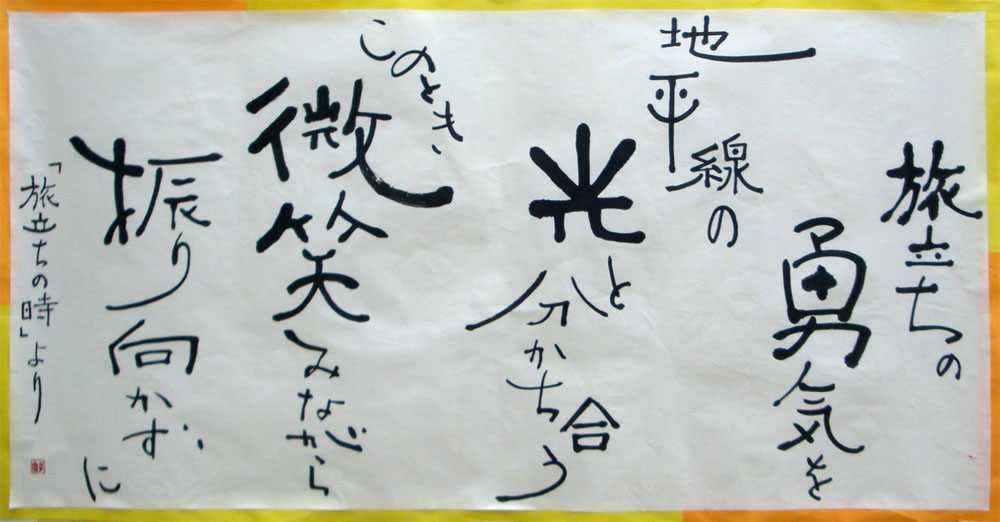 旅立ちの
勇気を
地平線の
光と
分かち合う
このとき、
微笑みながら
振り向かずに
「旅立ちの時」より